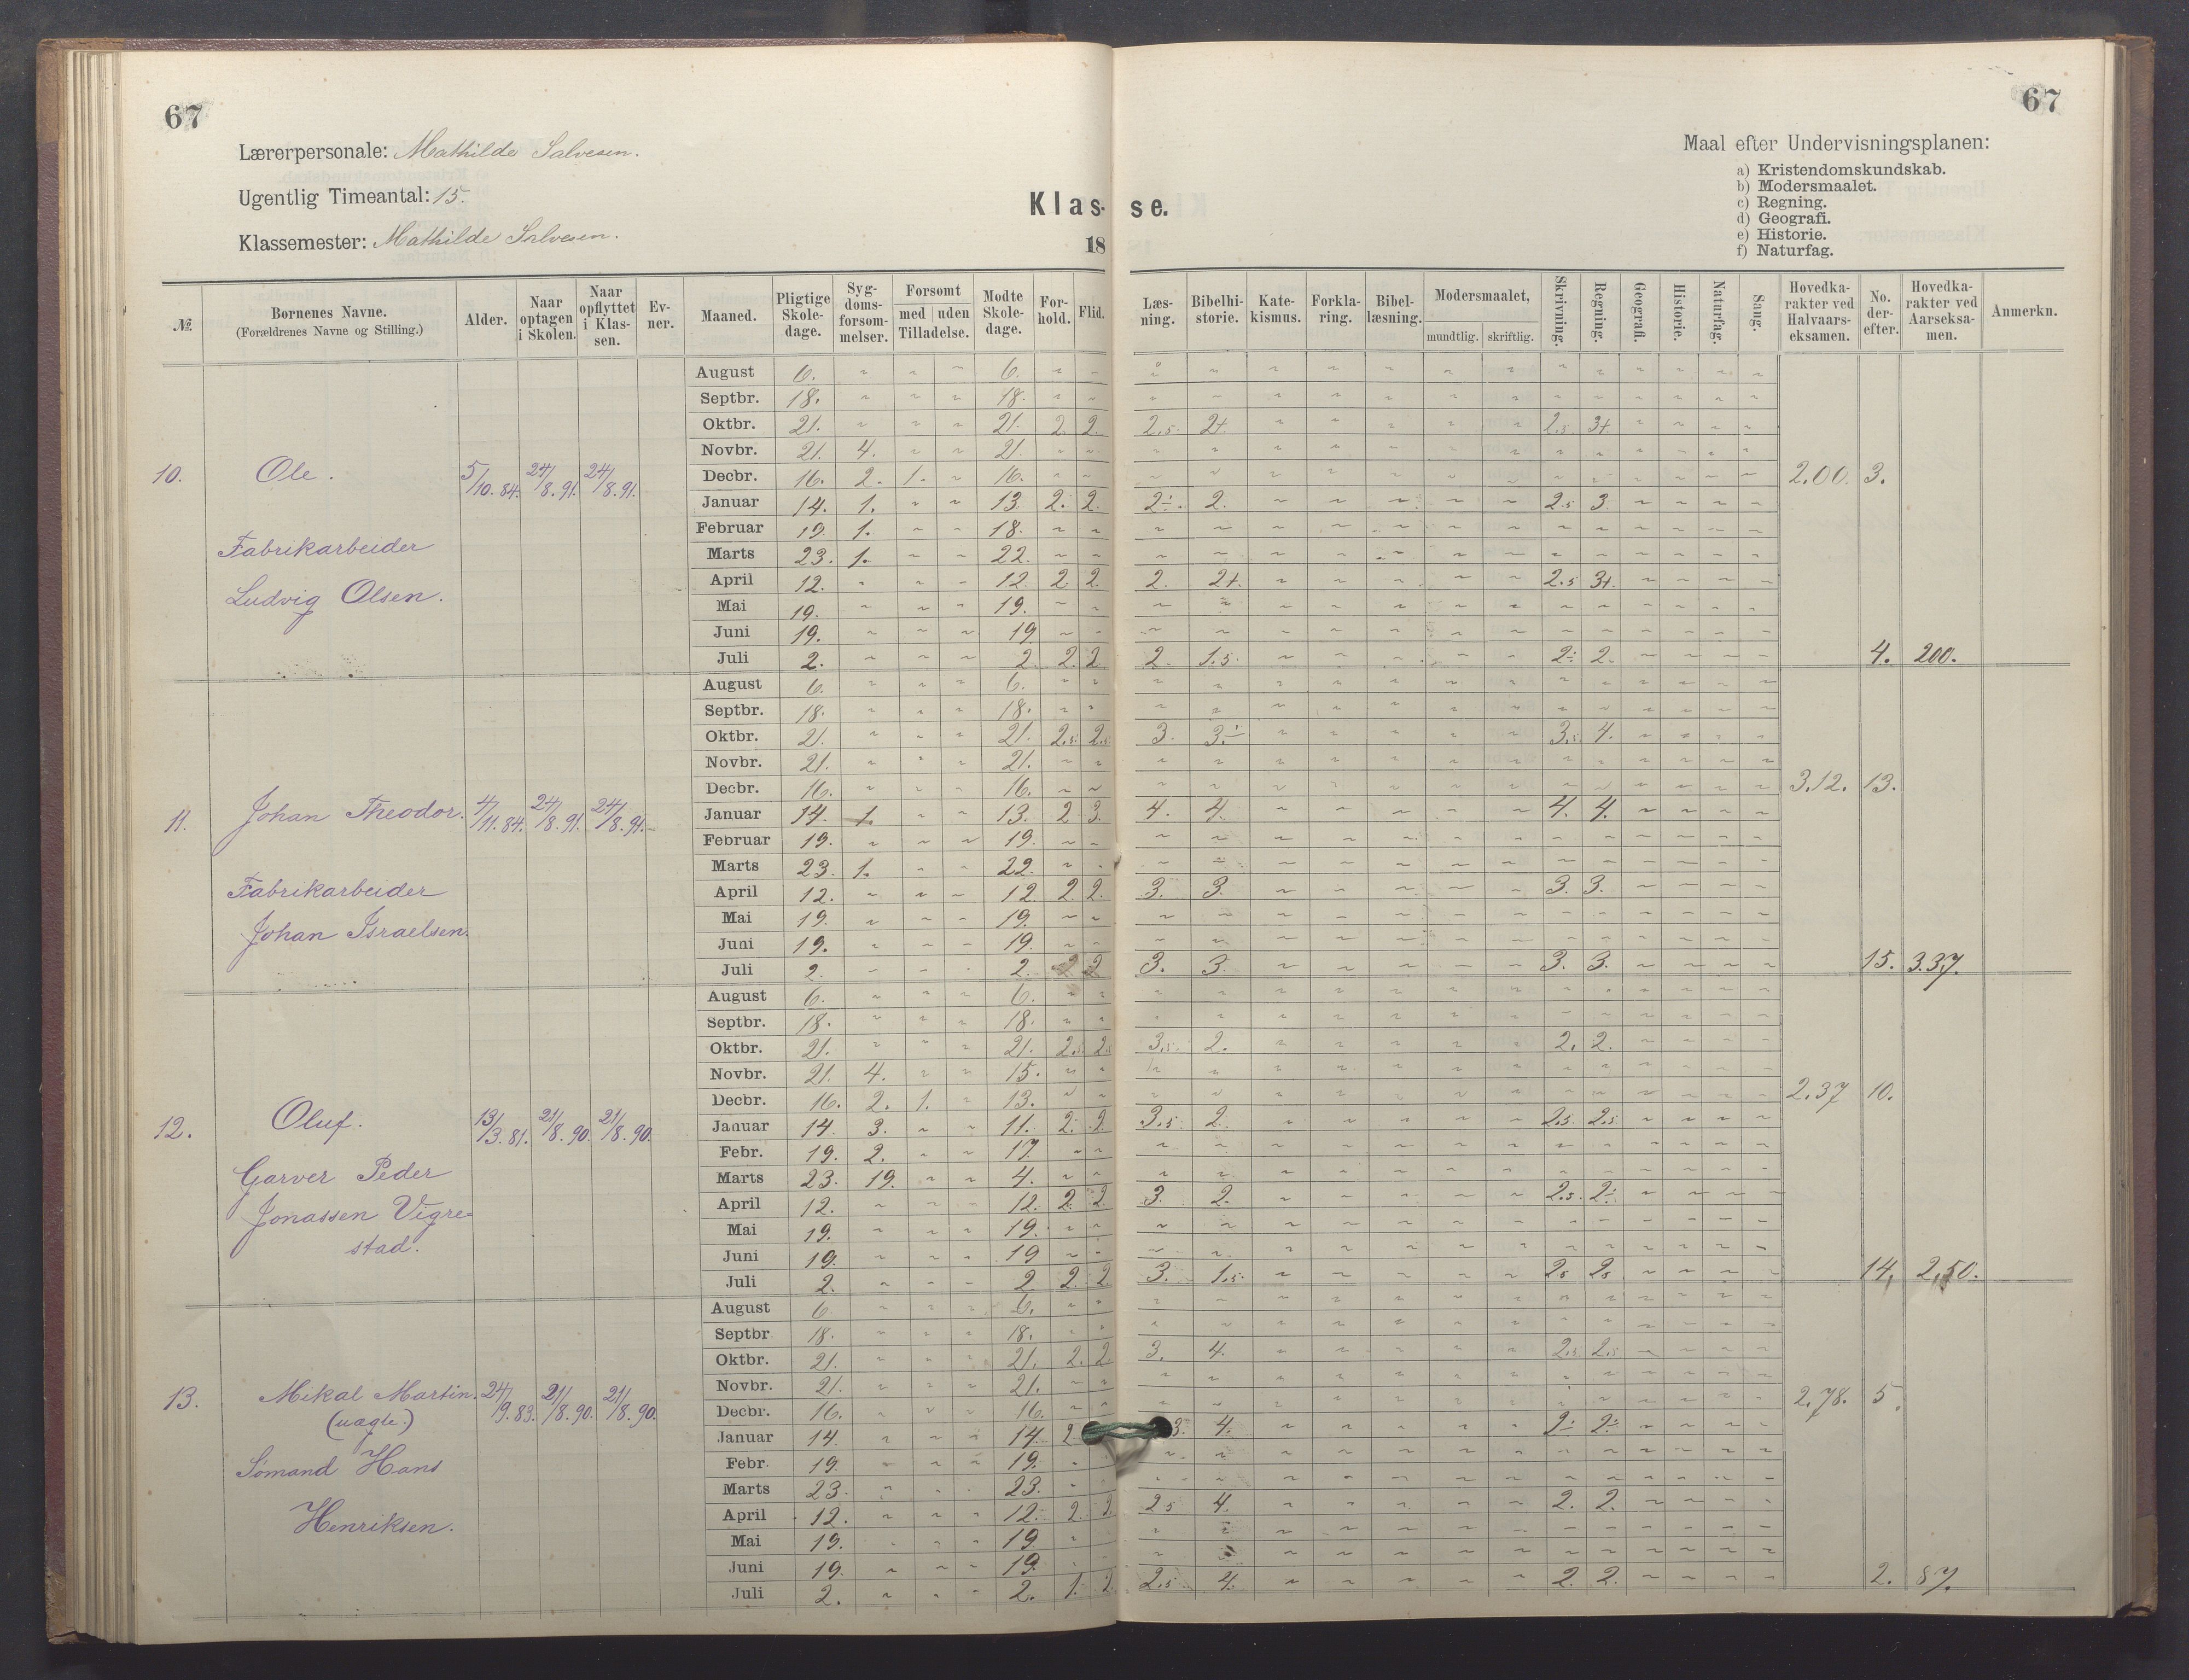 67
67
Lærerpersonale: Mathilde Salvesen.
Ugentlig Timeantal: 15.
Klassemester: Mathilde Salvesen.
Klas- se.
18
Maal efter Undervisningsplanen:
a) Kristendomskundskab.
b) Modersmaalet.
c) Regning.
d) Geografi.
e) Historie.
f) Naturfag.
№ Børnenes Navne. (Forældrenes Navne og Stilling.) Alder. Naar optagen i Skolen. Naar opflyttet i Klassen. Evner. Maaned. Pligtige Skoledage. Sygdomsforsømmelser. Forsømt med uden Tilladelse. Mødte Skoledage. Forhold. Flid. Læsning. Bibelhistorie. Katekismus. Forklaring. Bibellæsning. Modersmaalet, mundtlig. skriftlig. Skrivning. Regning. Geografi. Historie. Naturfag. Sang. Hovedkarakter ved Halvaarseksamen. No. derefter. Hovedkarakter ved Aarseksamen. Anmerkn.
10. Ole. 5/10. 84. 24/8. 91. 24/8. 91.
Fabrikarbeider
Ludvig Olsen.
August 6. 6.
Septbr. 18. 18.
Oktbr. 21. 21. 2. 2. 2.5. 2+. 2.5. 3+
Novbr. 21. 4. 21.
Decbr. 16. 2. 1. 16. 2.00. 3.
Januar 14. 1. 13. 2. 2. 2÷. 2. 2.5 3.
Februar 19. 1. 18.
Marts 23. 1. 22.
April 12. 12. 2. 2. 2. 2+. 2.5 3+.
Mai 19. 19.
Juni 19. 19
Juli 2. 2. 2. 2 2. 1.5. 2÷ 2. 4. 200.
11. Johan Theodor. 4/11. 84. 24/8. 91. 24/8. 91.
Fabrikarbeider
Johan Israelsen.
August 6. 6.
Septbr. 18. 18.
Oktbr. 21. 21. 2.5. 2.5 3. 3.÷ 3.5 4.
Novbr. 21. 21.
Decbr. 16. 16. 3.12. 13.
Januar 14. 1. 13. 2 3. 4. 4. 4. 4.
Februar 19. 19.
Marts 23. 1. 22.
April 12. 12. 2. 2. 3. 3. 3. 3.
Mai 19. 19.
Juni 19. 19.
Juli 2. 2. 2 2 3. 3. 3. 3. 15. 3.37.
12. Oluf. 13/3. 81. 21/8. 90. 21/8. 90.
Garver Peder
Jonassen Vigre-
stad.
August 6. 6.
Septbr. 18. 18.
Oktbr. 21. 21. 2.5 2.5 3.5. 2. 2. 2.
Novbr. 21. 4. 15.
Decbr. 16. 2. 1. 13. 2.37 10.
Januar 14. 3. 11. 2. 2. 3.5 2. 2.5. 2.5
Febr. 19. 2. 17.
Marts 23. 19. 4.
April 12. 12. 2. 2 3. 2. 2.5. 2÷
Mai 19. 19.
Juni 19. 19
Juli 2. 2. 2. 2 3. 1.5. 25 25 14, 2,50.
13. Mikal Martin. 24/9. 83. 21/8. 90. 21/8. 90.
(uægte.)
Sømand Hans
Henriksen.
August 6 6.
Septbr 18. 18.
Oktbr. 21. 21. 2. 2. 3. 4. 2.5 2.5
Novbr. 21. 21.
Decbr. 16. 16. 2.78. 5.
Januar 14. 14. 2 3. 4. 2÷ 2÷
Febr. 19. 19.
Marts 23. 23.
April 12. 12. 2. 2. 2.5 4. 2. 2.
Mai 19. 19
Juni 19. 19.
Juli 2. 2. 1. 2. 2.5 4. 2. 2. 2. 87.